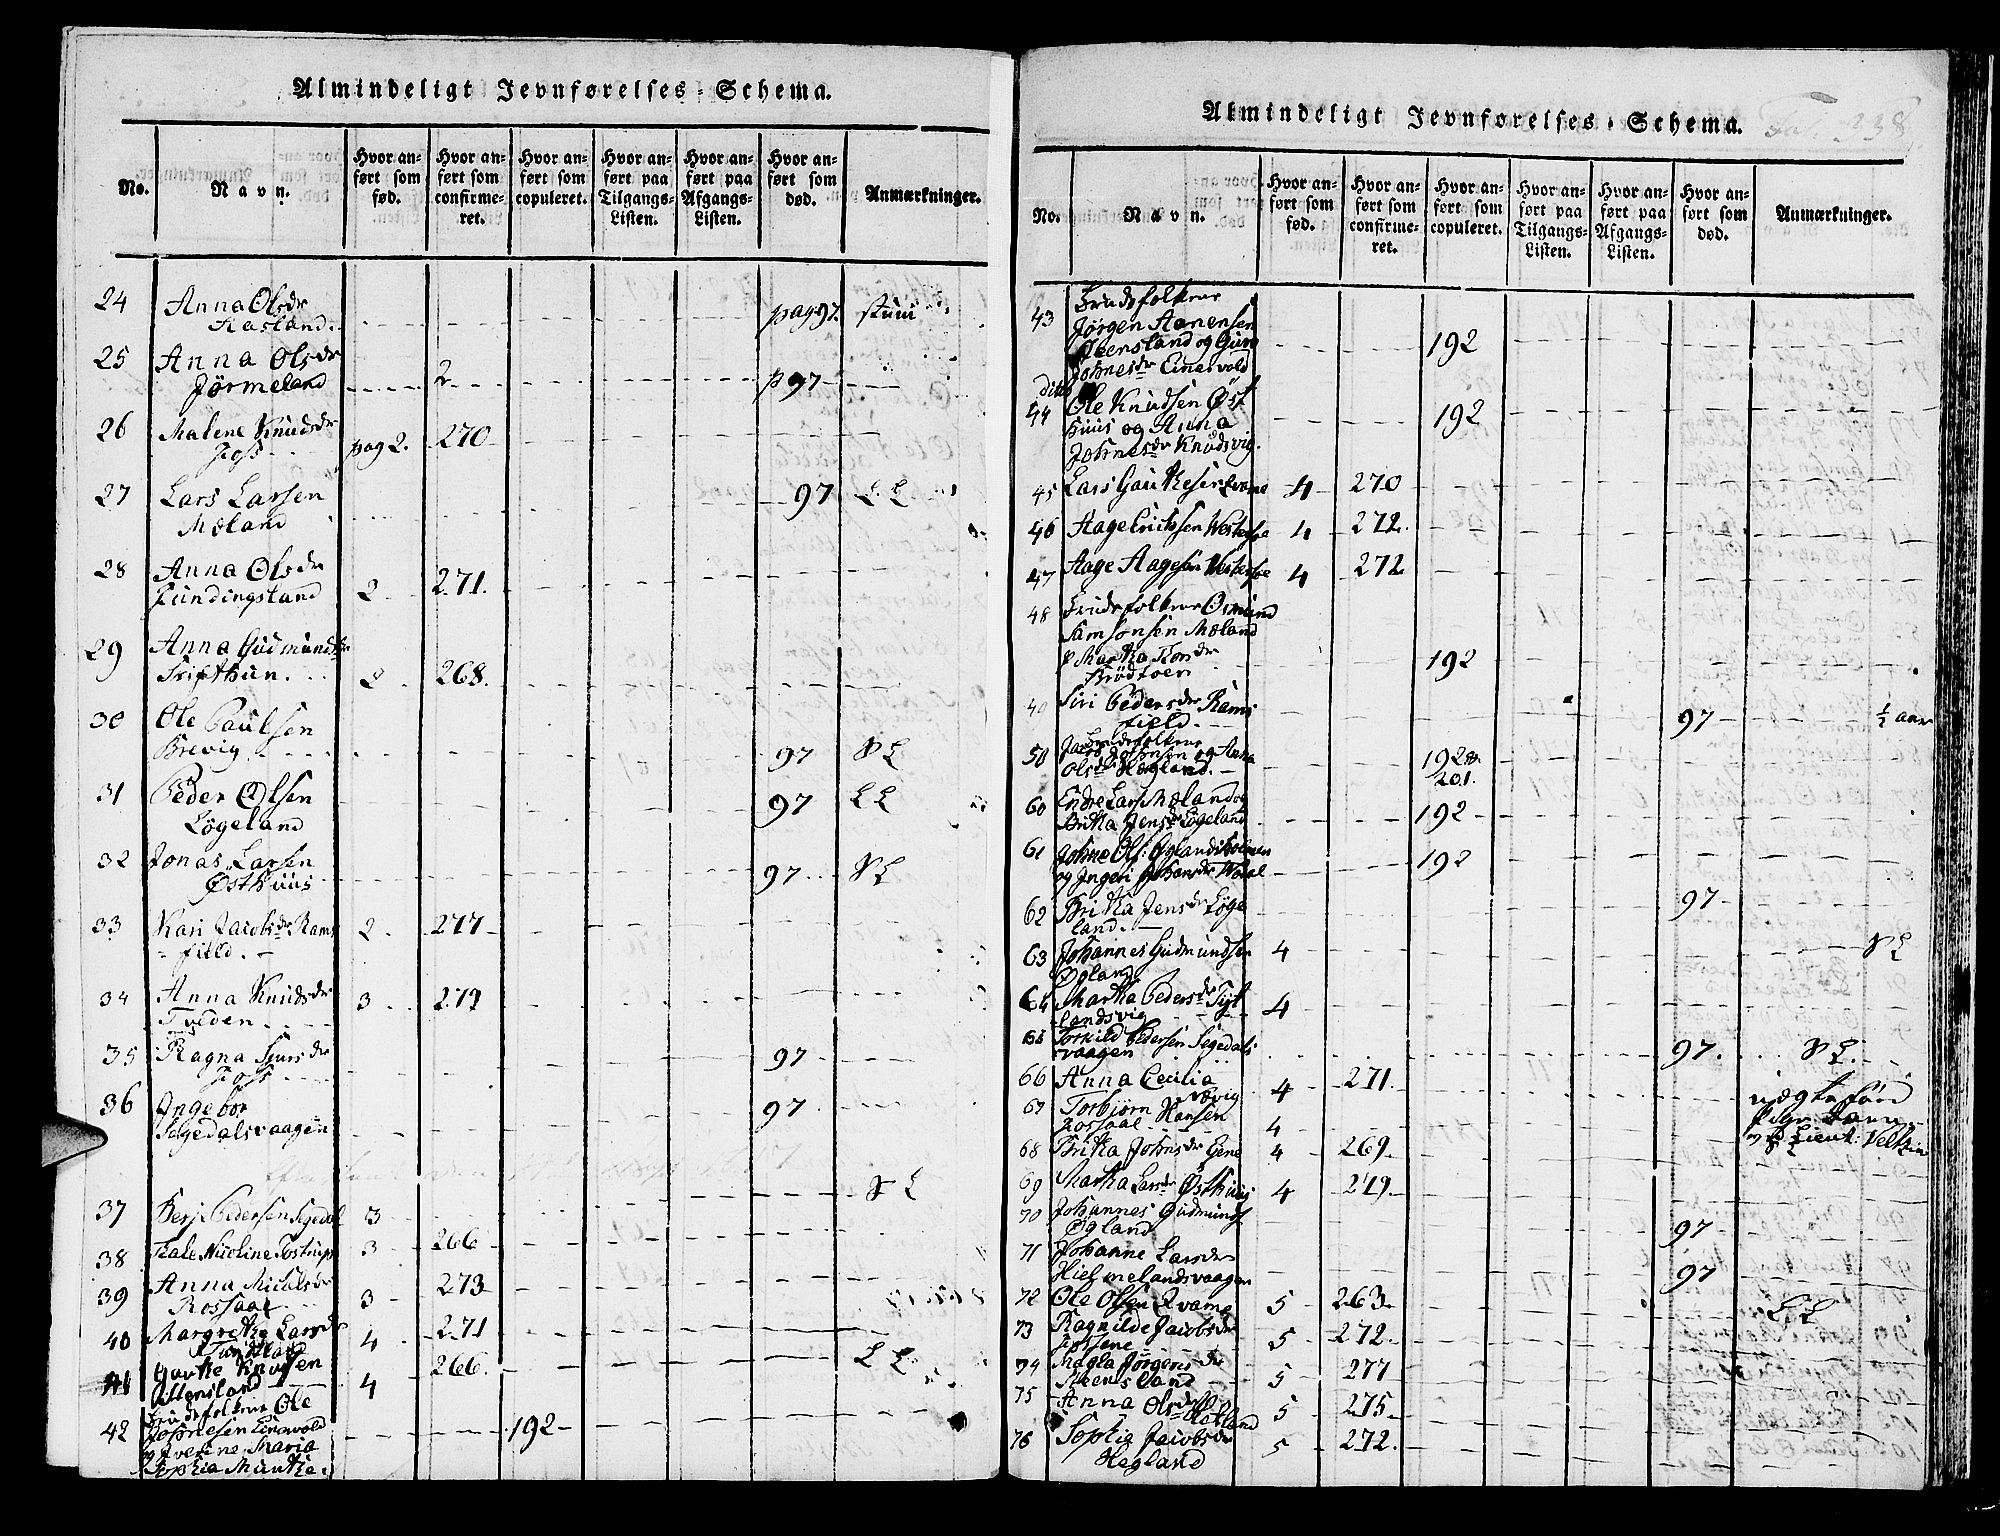 Almindeligt Jevnførelses-Schema.
No.
Navn.
Hvor anført som fød.
Hvor anført som confirmeret.
Hvor anført som copuleret.
Hvor anført paa Tilgangs-Listen.
Hvor anført paa Afgangs-Listen.
Hvor anført som død.
Anmærkninger.
24 Anna Olsdr
pag 97.
25 Anna Olsdr
Jørmeland 2 p 97
26 Malene Knudsdr
Foss pag 2. 270
27 Lars Larsen
Mæland 97 L L
28 Anna Olsdr
Fundingsland 2 271.
29 Anna Gudmundsdr
Srifthun 2 268.
30 Ole Paulsen
Brevig 97 S L
31 Peder Olsen
Løgeland 97 L L
32 Jonas Larsen
Østhuus 97 S L
33 Kari Jacobsdr Rams
field. 2. 277
34 Anna Knudsdr
Tveden 3 279
35 Ragna Siursdr
Foss 97
36 Ingebor
Segedalsvaagen 97
37 Berje Pedersen Segedal 3 S L
38 Nicoline Tostrup 3 266
39 Anna Michelsdr
Rossaae 3 273
40 Margrethe Larsdr
Tundland 4 271
41 Gauthe Knutsen
4 266 L L
Brudefolkene Ole
42 Johnesen Einevold 192
og Iverine Maria
Sophia Munthe.
Almindeligt Jevnførelses-Schema.
238
No.
Navn.
Hvor anført som fød.
Hvor anført som confirmeret.
Hvor anført som copuleret.
Hvor anført paa Tilgangs-Listen.
Hvor anført paa Afgangs-Listen.
Hvor anført som død.
Anmærkninger.
Brudefolkene
43 Jørgen Aanensen
Steensland og Guro 192
Johnesdr Einevold
ditto
44 Ole Knudsen Øst
huus og Anna 192
Johnesdr Knudsvig.
45 Lars Gauthesen Qvame 4 270
46 Aage Erichsen Vestersøe 4 272.
47 Aage Aagesen Vestersøe 4 272
48 Brudefolkene Osmund
Samsonsen Mæland
192
49 Siri Pedersdr Rams
field. 97 ½ aar
Brudefolkene
50 Jacob Johnsen og Anna 192 &
Olsdr Hægland. 201.
60 Endre Lars Mæland og
Britha Jensdr Løgeland 192
61 Johne Ols: Øglandsholmen
og Ingeri Johansdr Waal 192
62 Britha Jensdr Løge
land. 97
63 Johannes Gudmundsen 4 S L
Øgland
64 Martha Pedersdr Tyt
landsvig 4
65 Torkild Pedersen Segedals
vaagen 97. S L.
66 Anna Cecilia
Wevig 4 271
67 Torbjørn Hansen
Fossaae 4
68 Britha Johnsdr Gene 4 269
69 Martha Larsdr Østhuus 4 279
70 Johannes Gudmunds
Øgland 97
71 Johanne Larsdr
Hielmelandsvaagen 97
72 Ole Olsen Qvame 5 263 L L
73 Ragnilde Jacobsdr
Fossene 5 272
74 Magla Jørgensdr
Steensland 5 277
75 Anna Olsdr
Hetland 5 275
76 Sophie Jacobsdr
Hegland 5 272